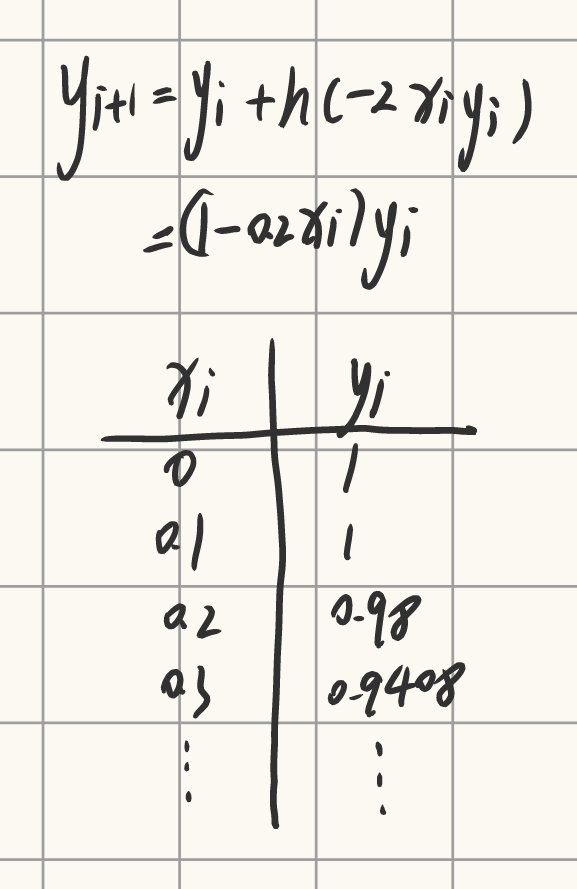 y_{i+1} = y_i + h(-2x_i y_i)
= (1-0.2x_i)y_i
x_i y_i
0 1
0.1 1
0.2 0.98
0.3 0.9408
⋮ ⋮